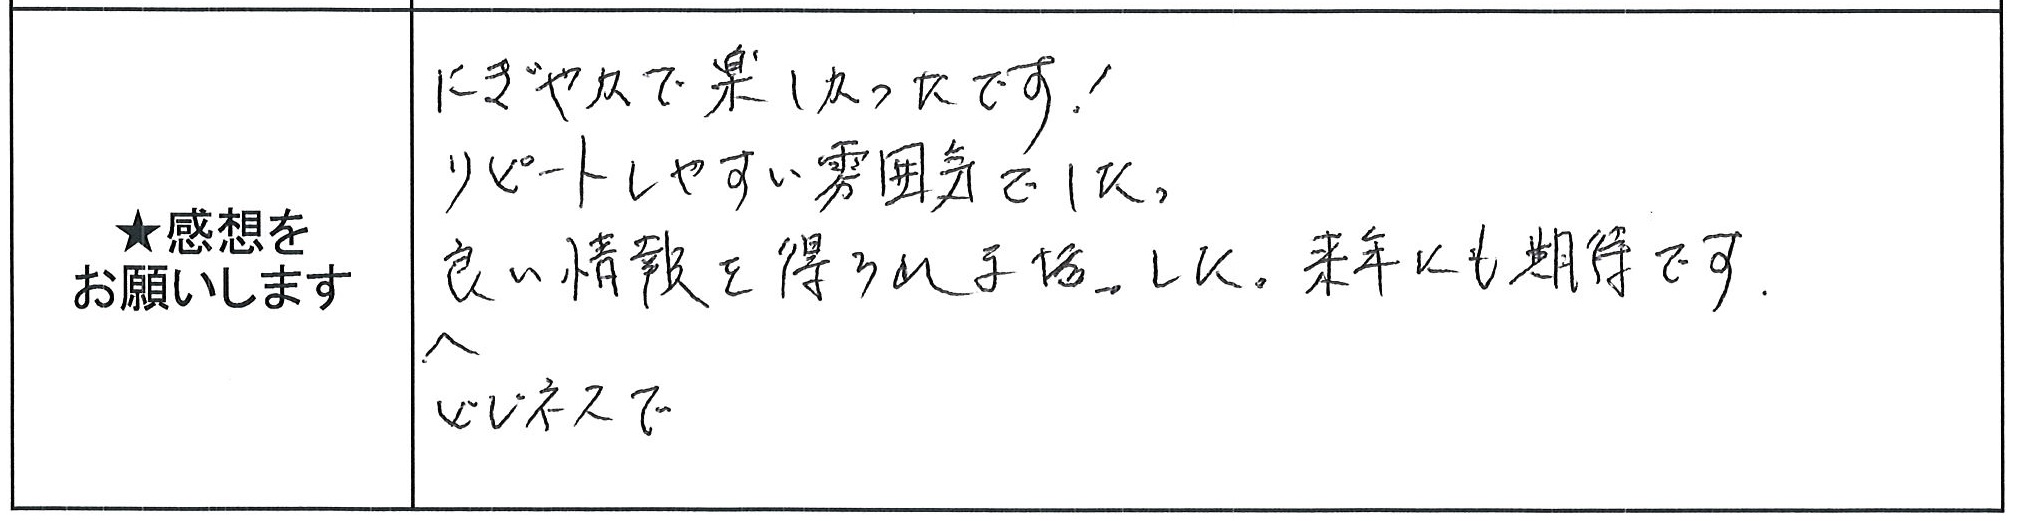 ★感想を
お願いします
にぎやかで楽しかったです!
リピートしやすい雰囲気でした。
良い情報を得られましした。来年にも期待です.
へ
ビジネスで